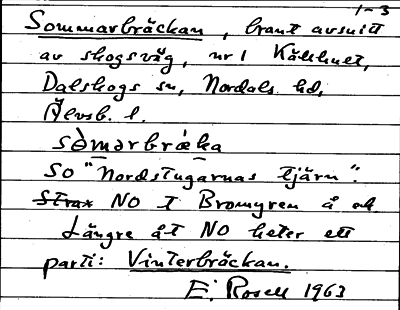 1-3
Sommarbräckan, brant avsnitt
av skogsväg, nr 1 Kälehult,
Dalskogs sn, Nordals hd,
Älvsb. l.
sòmarbrǽka
SO "Nordstugarnas tjärn".
Strax NO t Bromyren å och
längre åt NO heter ett
parti: Vinterbräckan.
E. Rosell 1963